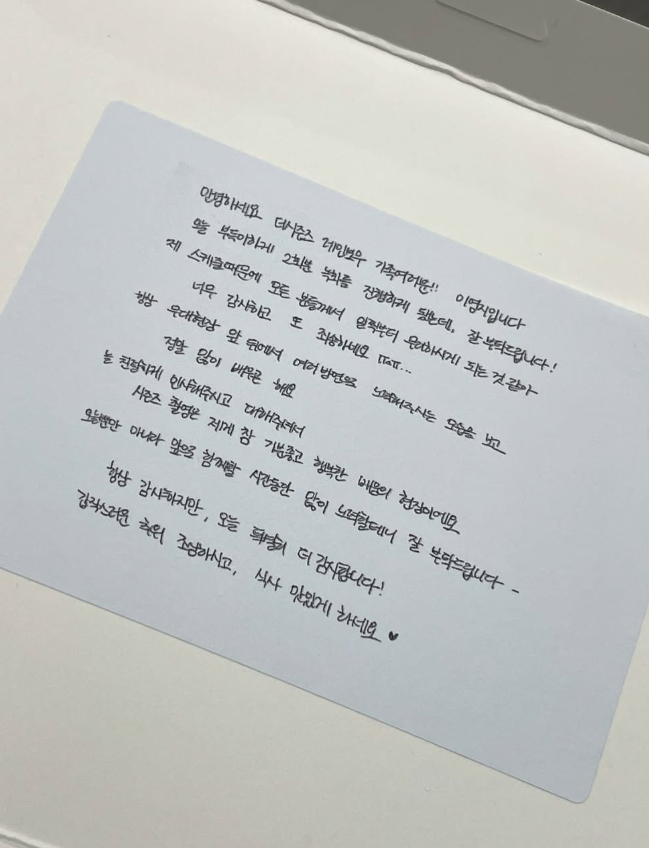 안녕하세요 더시즌즈 레인보우 가족여러분!! 이영지입니다
오늘 부득이하게 2회분 녹화를 진행하게 됐는데, 잘 부탁드립니다!
제 스케줄때문에 모든 분들께서 일찍부터 무리하시게 되는 것 같아
너무 감사하고 또 죄송하네요 ㅠㅠ...
항상 무대현장 앞 뒤에서 여러방면으로 노력해주시는 모습을 보고
정말 많이 배우곤 해요
늘 친절하게 인사해주시고 대해주셔서
시즌즈 촬영은 제게 참 기분좋고 행복한 배움의 현장이에요
오늘뿐만 아니라 앞으로 함께할 시간동안 많이 노력할테니 잘 부탁드립니다 -
항상 감사하지만, 오늘 특별히 더 감사합니다!
갑작스러운 한파 조심하시고, 식사 맛있게 하세요 ♥